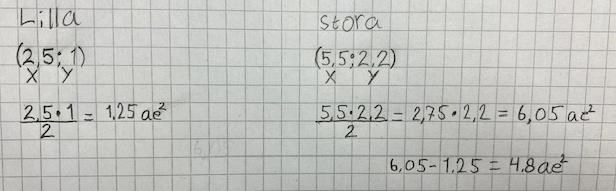 Lilla
(2,5; 1)
x y
2,5·1/2 = 1,25 ae²
stora
(5,5; 2,2)
x y
5,5·2,2/2 = 2,75·2,2 = 6,05 ae²
6,05-1,25 = 4,8 ae²